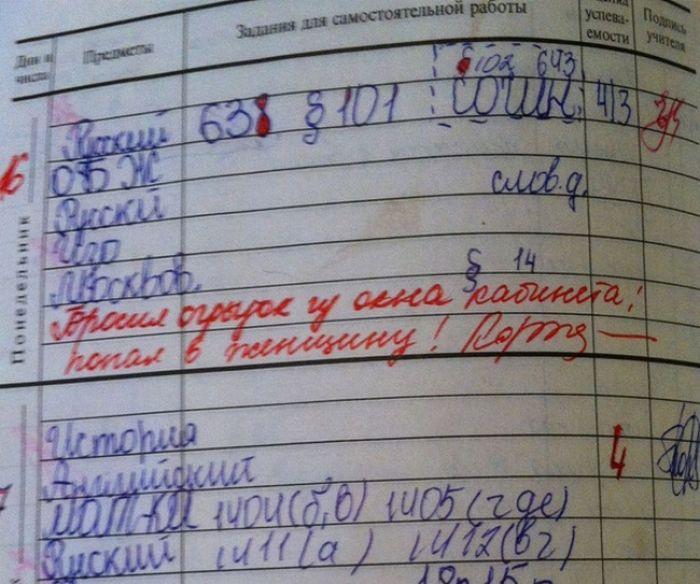 Дни и числа Предметы Задания для самостоятельной работы успева-емости Подпись учителя
§102 643
Русский 638 § 101 сочин. 4/3
16 Понедельник
ОБЖ
Русскй слов.д.
Изо
Москвов. § 14
Бросил огрызок из окна кабинета,
попал в женщину!
История
Английский 4
мат-ка 1404(б,в) 1405(где)
Русский 1411(а) 1412(вг)